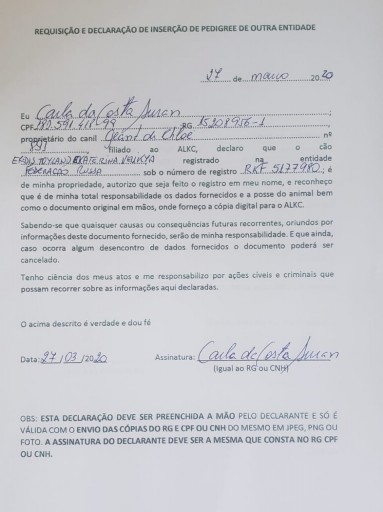 REQUISIÇÃO E DECLARAÇÃO DE INSERÇÃO DE PEDIGREE DE OUTRA ENTIDADE
27 de março 2020
Eu Carla da Costa
CPF RG 15308956-1
proprietário do canil Chloe nº
filiado ao ALKC, declaro que o cão
registrado na entidade
Federação Russa sob o número de registro RKF 5177980; é
de minha propriedade, autorizo que seja feito o registro em meu nome, e reconheço
que é de minha total responsabilidade os dados fornecidos e a posse do animal bem
como o documento original em mãos, onde forneço a cópia digital para o ALKC.
Sabendo-se que quaisquer causas ou consequências futuras recorrentes, oriundos por
informações deste documento fornecido, serão de minha responsabilidade. E que ainda,
caso ocorra algum desencontro de dados fornecidos o documento poderá ser
cancelado.
Tenho ciência dos meus atos e me responsabilizo por ações cíveis e criminais que
possam recorrer sobre as informações aqui declaradas.
O acima descrito é verdade e dou fé
Data: 27/03/2020 Assinatura: Carla da Costa
(Igual ao RG ou CNH)
OBS: ESTA DECLARAÇÃO DEVE SER PREENCHIDA A MÃO PELO DECLARANTE E SÓ É
VÁLIDA COM O ENVIO DAS CÓPIAS DO RG E CPF OU CNH DO MESMO EM JPEG, PNG OU
FOTO. A ASSINATURA DO DECLARANTE DEVE SER A MESMA QUE CONSTA NO RG CPF
OU CNH.